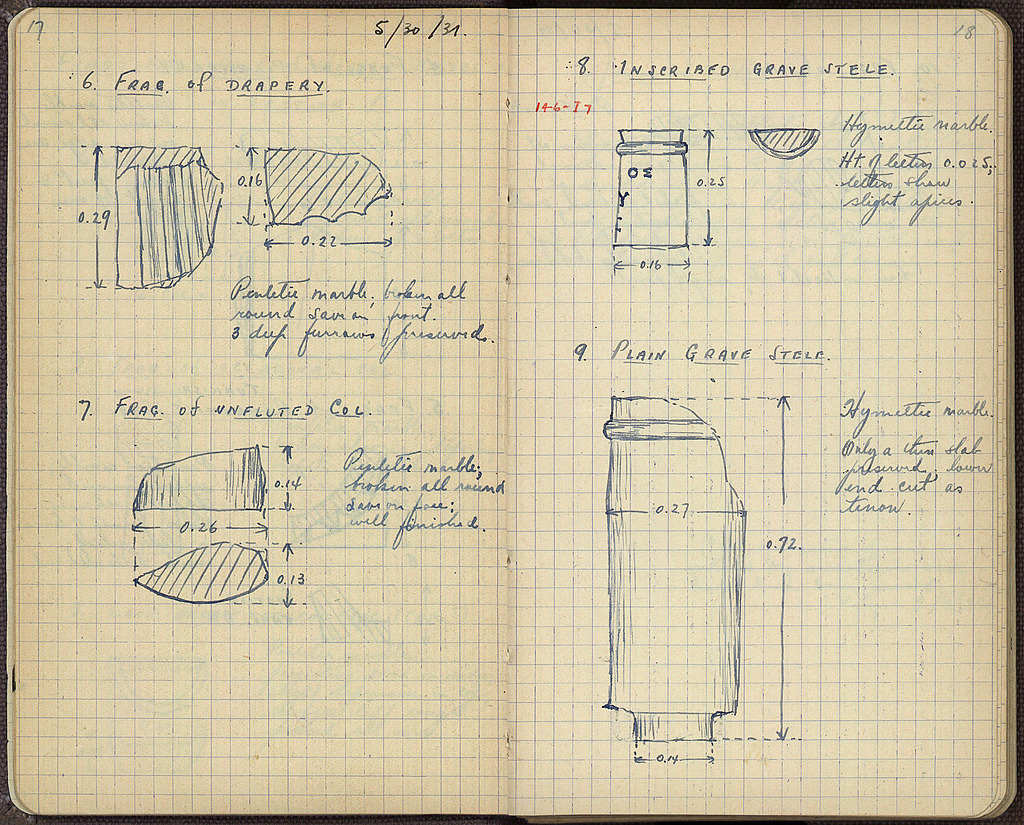 17
5/30/31.
6. FRAG. of DRAPERY.
0.29
0.16
0.22
Pentelic marble; broken all
round save on front.
3 deep furrows preserved.
7. FRAG. of UNFLUTED COL.
0.14
0.26
0.13
Pentelic marble;
broken all round
save on face;
well finished.
18
8. INSCRIBED GRAVE STELE.
0.25
0.16
Hymettic marble.
Ht. of letters 0.025;
letters show
slight apices.
9. PLAIN GRAVE STELE.
0.27
0.72.
0.14
Hymettic marble.
Only a thin slab
preserved. lower
end cut as
tenon.